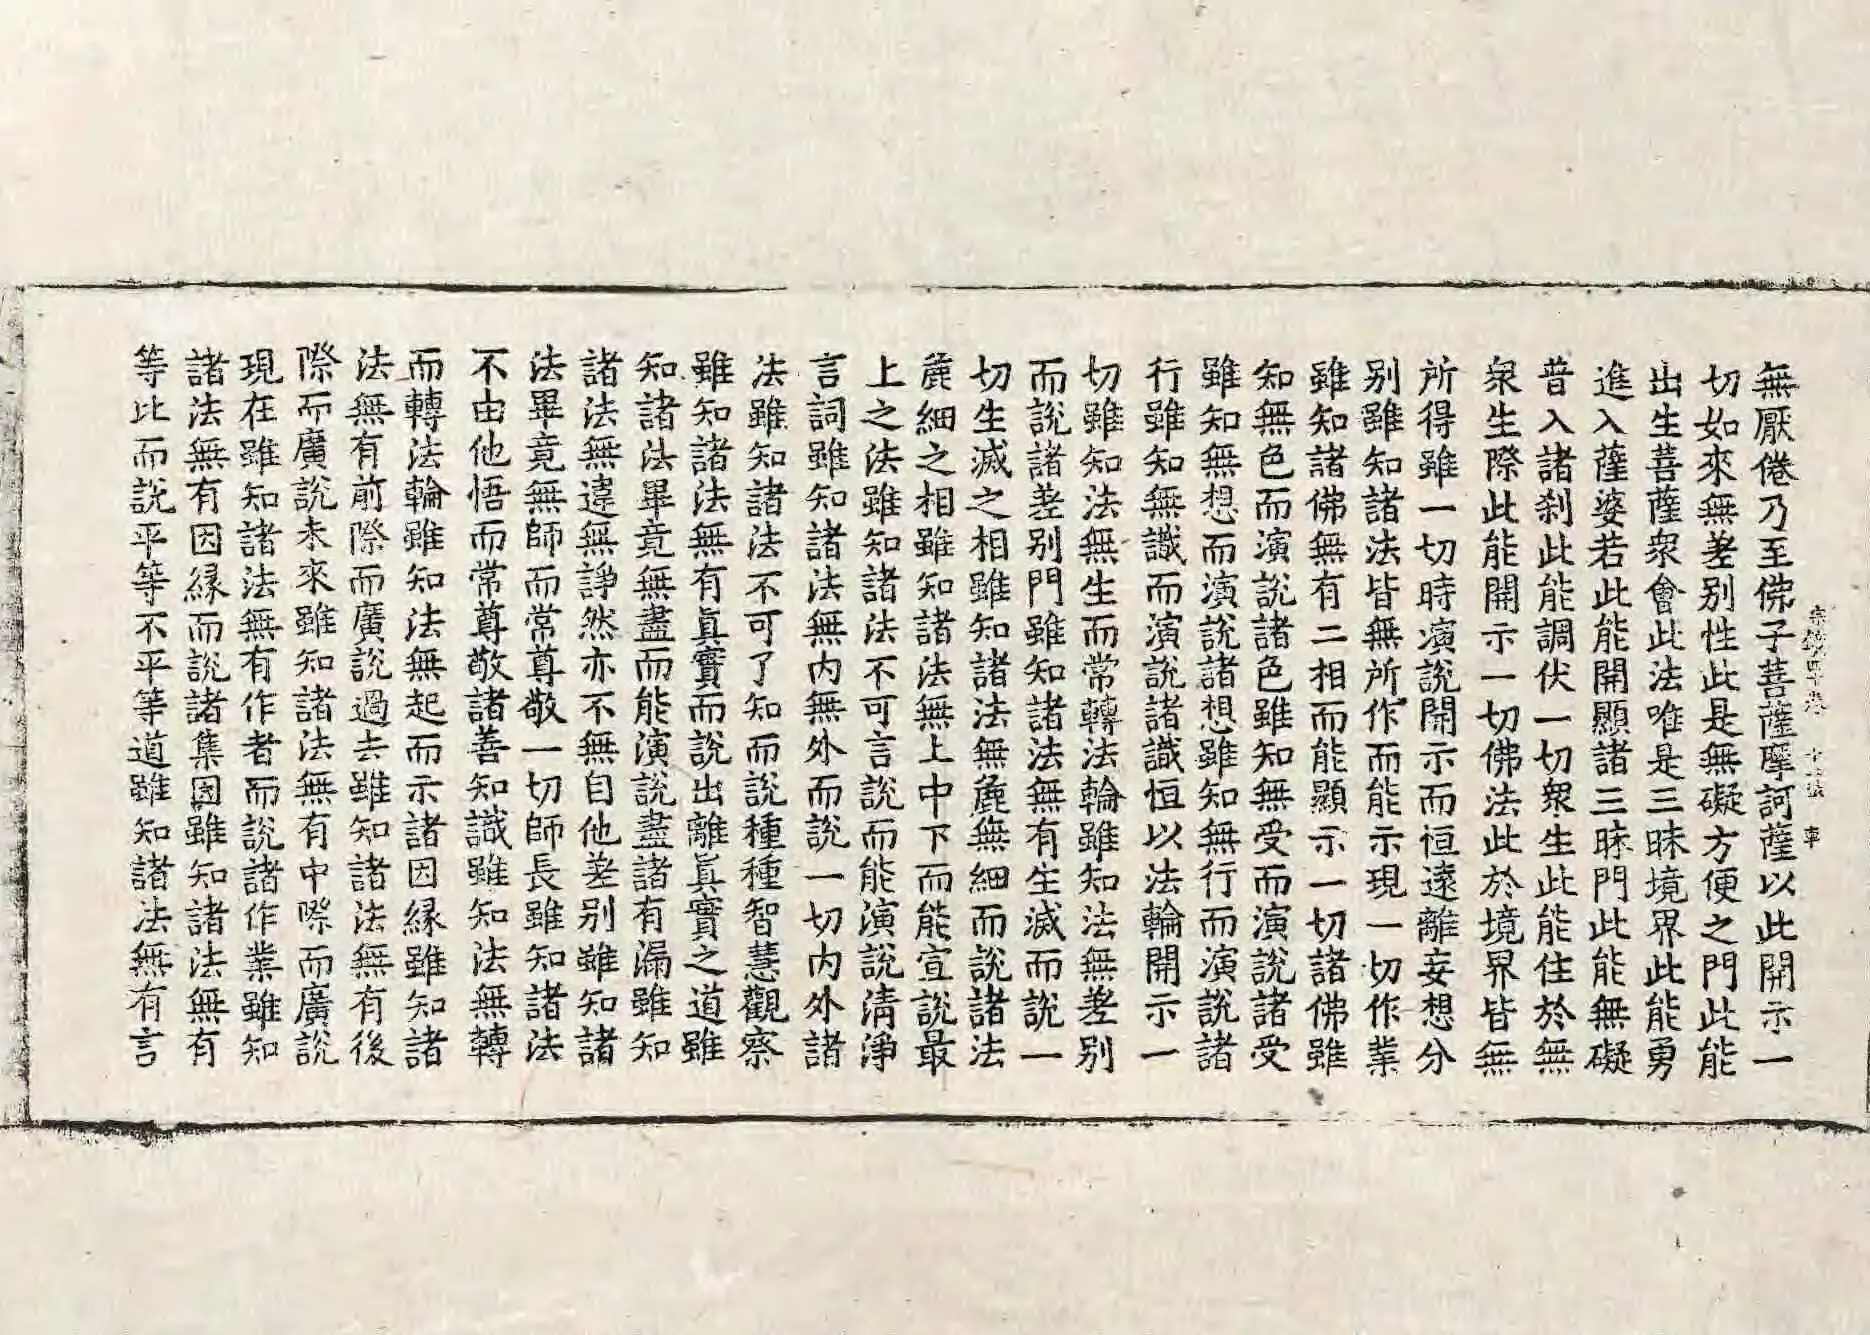 無厭倦乃至佛子菩薩摩訶薩以此開示一
切如來無差別性此是無礙方便之門此能
出生菩薩衆會此法唯是三昧境界此能勇
進入薩婆若此能開顯諸三昧門此能無礙
普入諸刹此能調伏一切衆生此能住於無
衆生際此能開示一切佛法此於境界皆無
所得雖一切時演說開示而恒遠離妄想分
別雖知諸法皆無所作而能示現一切作業
雖知諸佛無有二相而能顯示一切諸佛雖
知無色而演說諸色雖知無受而演說諸受
雖知無想而演說諸想雖知無行而演說諸
行雖知無識而演說諸識恒以法輪開示一
切雖知法無生而常轉法輪雖知法無差別
而說諸差別門雖知諸法無有生滅而說一
切生滅之相雖知諸法無麁無細而說諸法
麁細之相雖知諸法無上中下而能宣說最
上之法雖知諸法不可言說而能演說清淨
言詞雖知諸法無内無外而說一切内外諸
法雖知諸法不可了知而說種種智慧觀察
雖知諸法無有眞實而說出離眞實之道雖
知諸法畢竟無盡而能演說盡諸有漏雖知
諸法無違無諍然亦不無自他差別雖知諸
法畢竟無師而常尊敬一切師長雖知諸法
不由他悟而常尊敬諸善知識雖知法無轉
而轉法輪雖知法無起而示諸因緣雖知諸
法無有前際而廣說過去雖知諸法無有後
際而廣說未來雖知諸法無有中際而廣說
現在雖知諸法無有作者而說諸作業雖知
諸法無有因緣而說諸集因雖知諸法無有
等比而說平等不平等道雖知諸法無有言